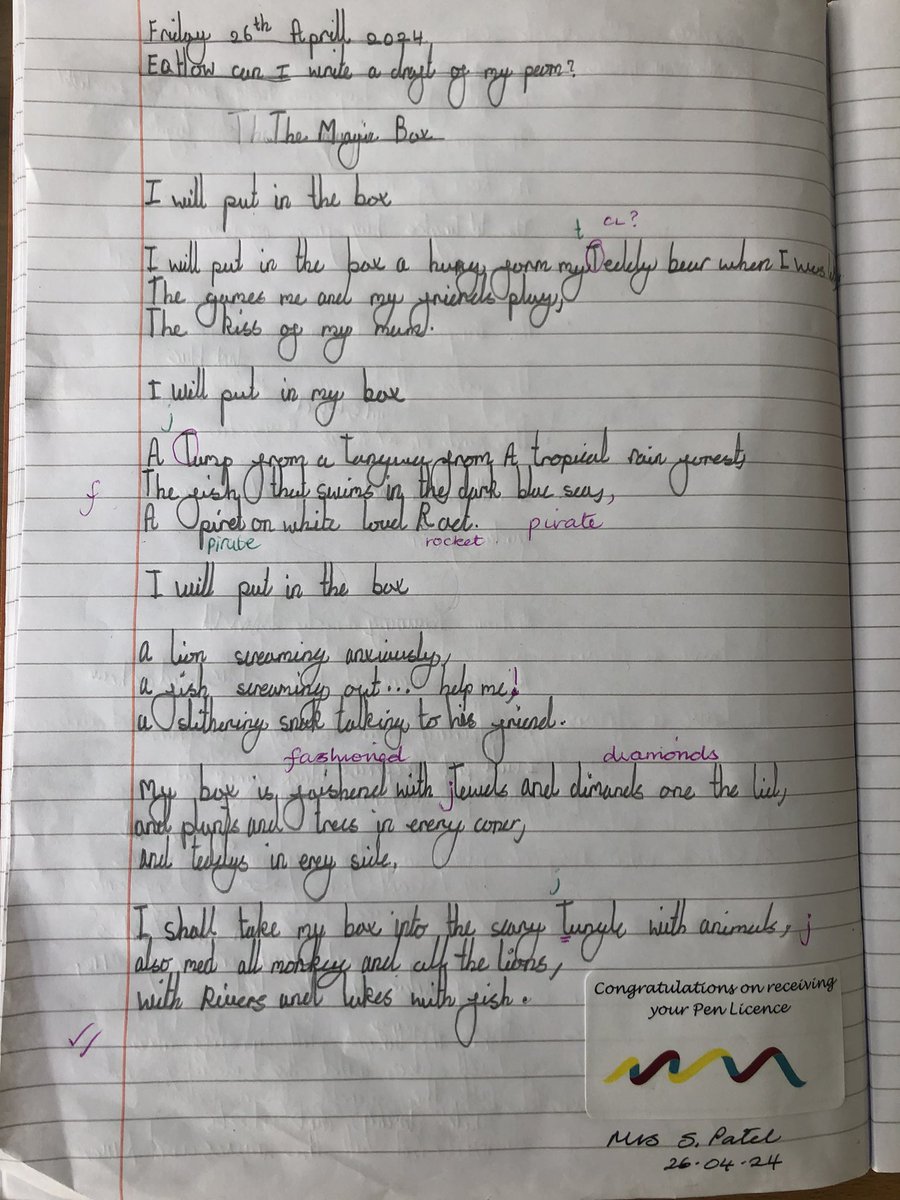 Friday 26th Aprill 2024
EaHow can I write a draft of my peom?
Th The Magic Box
I will put in the box
t CL?
I will put in the box a hugy form my Teddy bear when I was
The games me and my friends play,
The kiss of my mum.
I will put in my box
j
A Tump from a Tanguwa from A tropical rain forest,
f The fish that swims in the dark blue seas,
A piret on white loud Roct. pirate
pirate rocket
I will put in the box
a lion screaming anxiously,
a fish screaming out... help me!
a slithering snak talking to his friend.
fashioned diamonds
My box is faishend with jewels and dimands one the lid,
and plants and trees in enery coner,
and teddys in erey side.
j
I shall take my box into the scary Tungle with animals, j
also med all monkey and all the lions,
with Rivers and lakes with fish.
Congratulations on receiving
your Pen Licence
Mrs S. Patel
26.04.24